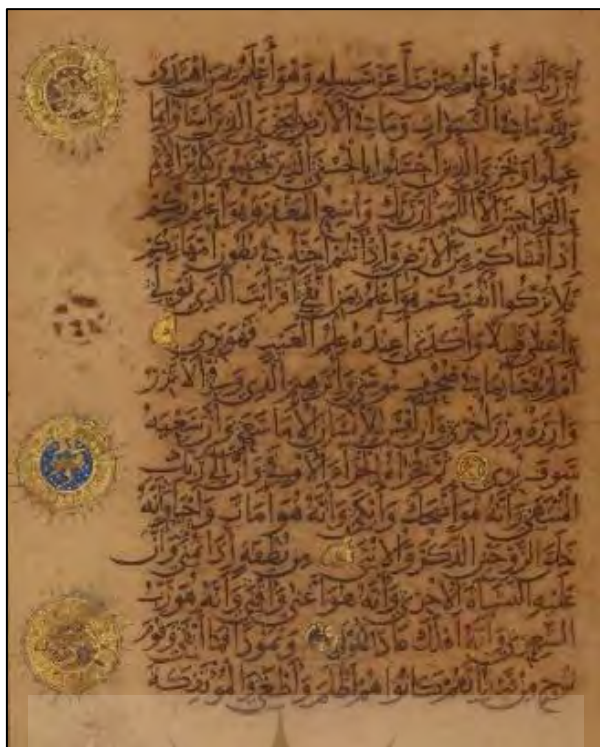 إن ربك هو أعلم بمن ضل عن سبيله وهو أعلم بمن اهتدى
ولله ما في السموات وما في الأرض ليجزي الذين أساؤا بما
عملوا ويجزي الذين أحسنوا بالحسنى الذين يجتنبون كبائر الإثم
والفواحش إلا اللمم إن ربك واسع المغفرة هو أعلم بكم
إذ أنشأكم من الأرض وإذ أنتم أجنة في بطون أمهاتكم
فلا تزكوا أنفسكم هو أعلم بمن اتقى أفرأيت الذي تولى
وأعطى قليلا وأكدى أعنده علم الغيب فهو يرى
أم لم ينبأ بما في صحف موسى وإبراهيم الذي وفى ألا تزر
وازرة وزر أخرى وأن ليس للإنسان إلا ما سعى وأن سعيه
سوف يرى ثم يجزاه الجزاء الأوفى وأن إلى ربك
المنتهى وأنه هو أضحك وأبكى وأنه هو أمات وأحيا وأنه
خلق الزوجين الذكر والأنثى من نطفة إذا تمنى وأن
عليه النشأة الأخرى وأنه هو أغنى وأقنى وأنه هو رب
الشعرى وأنه أهلك عادا الأولى وثمودا فما أبقى وقوم
نوح من قبل إنهم كانوا هم أظلم وأطغى والمؤتفكة